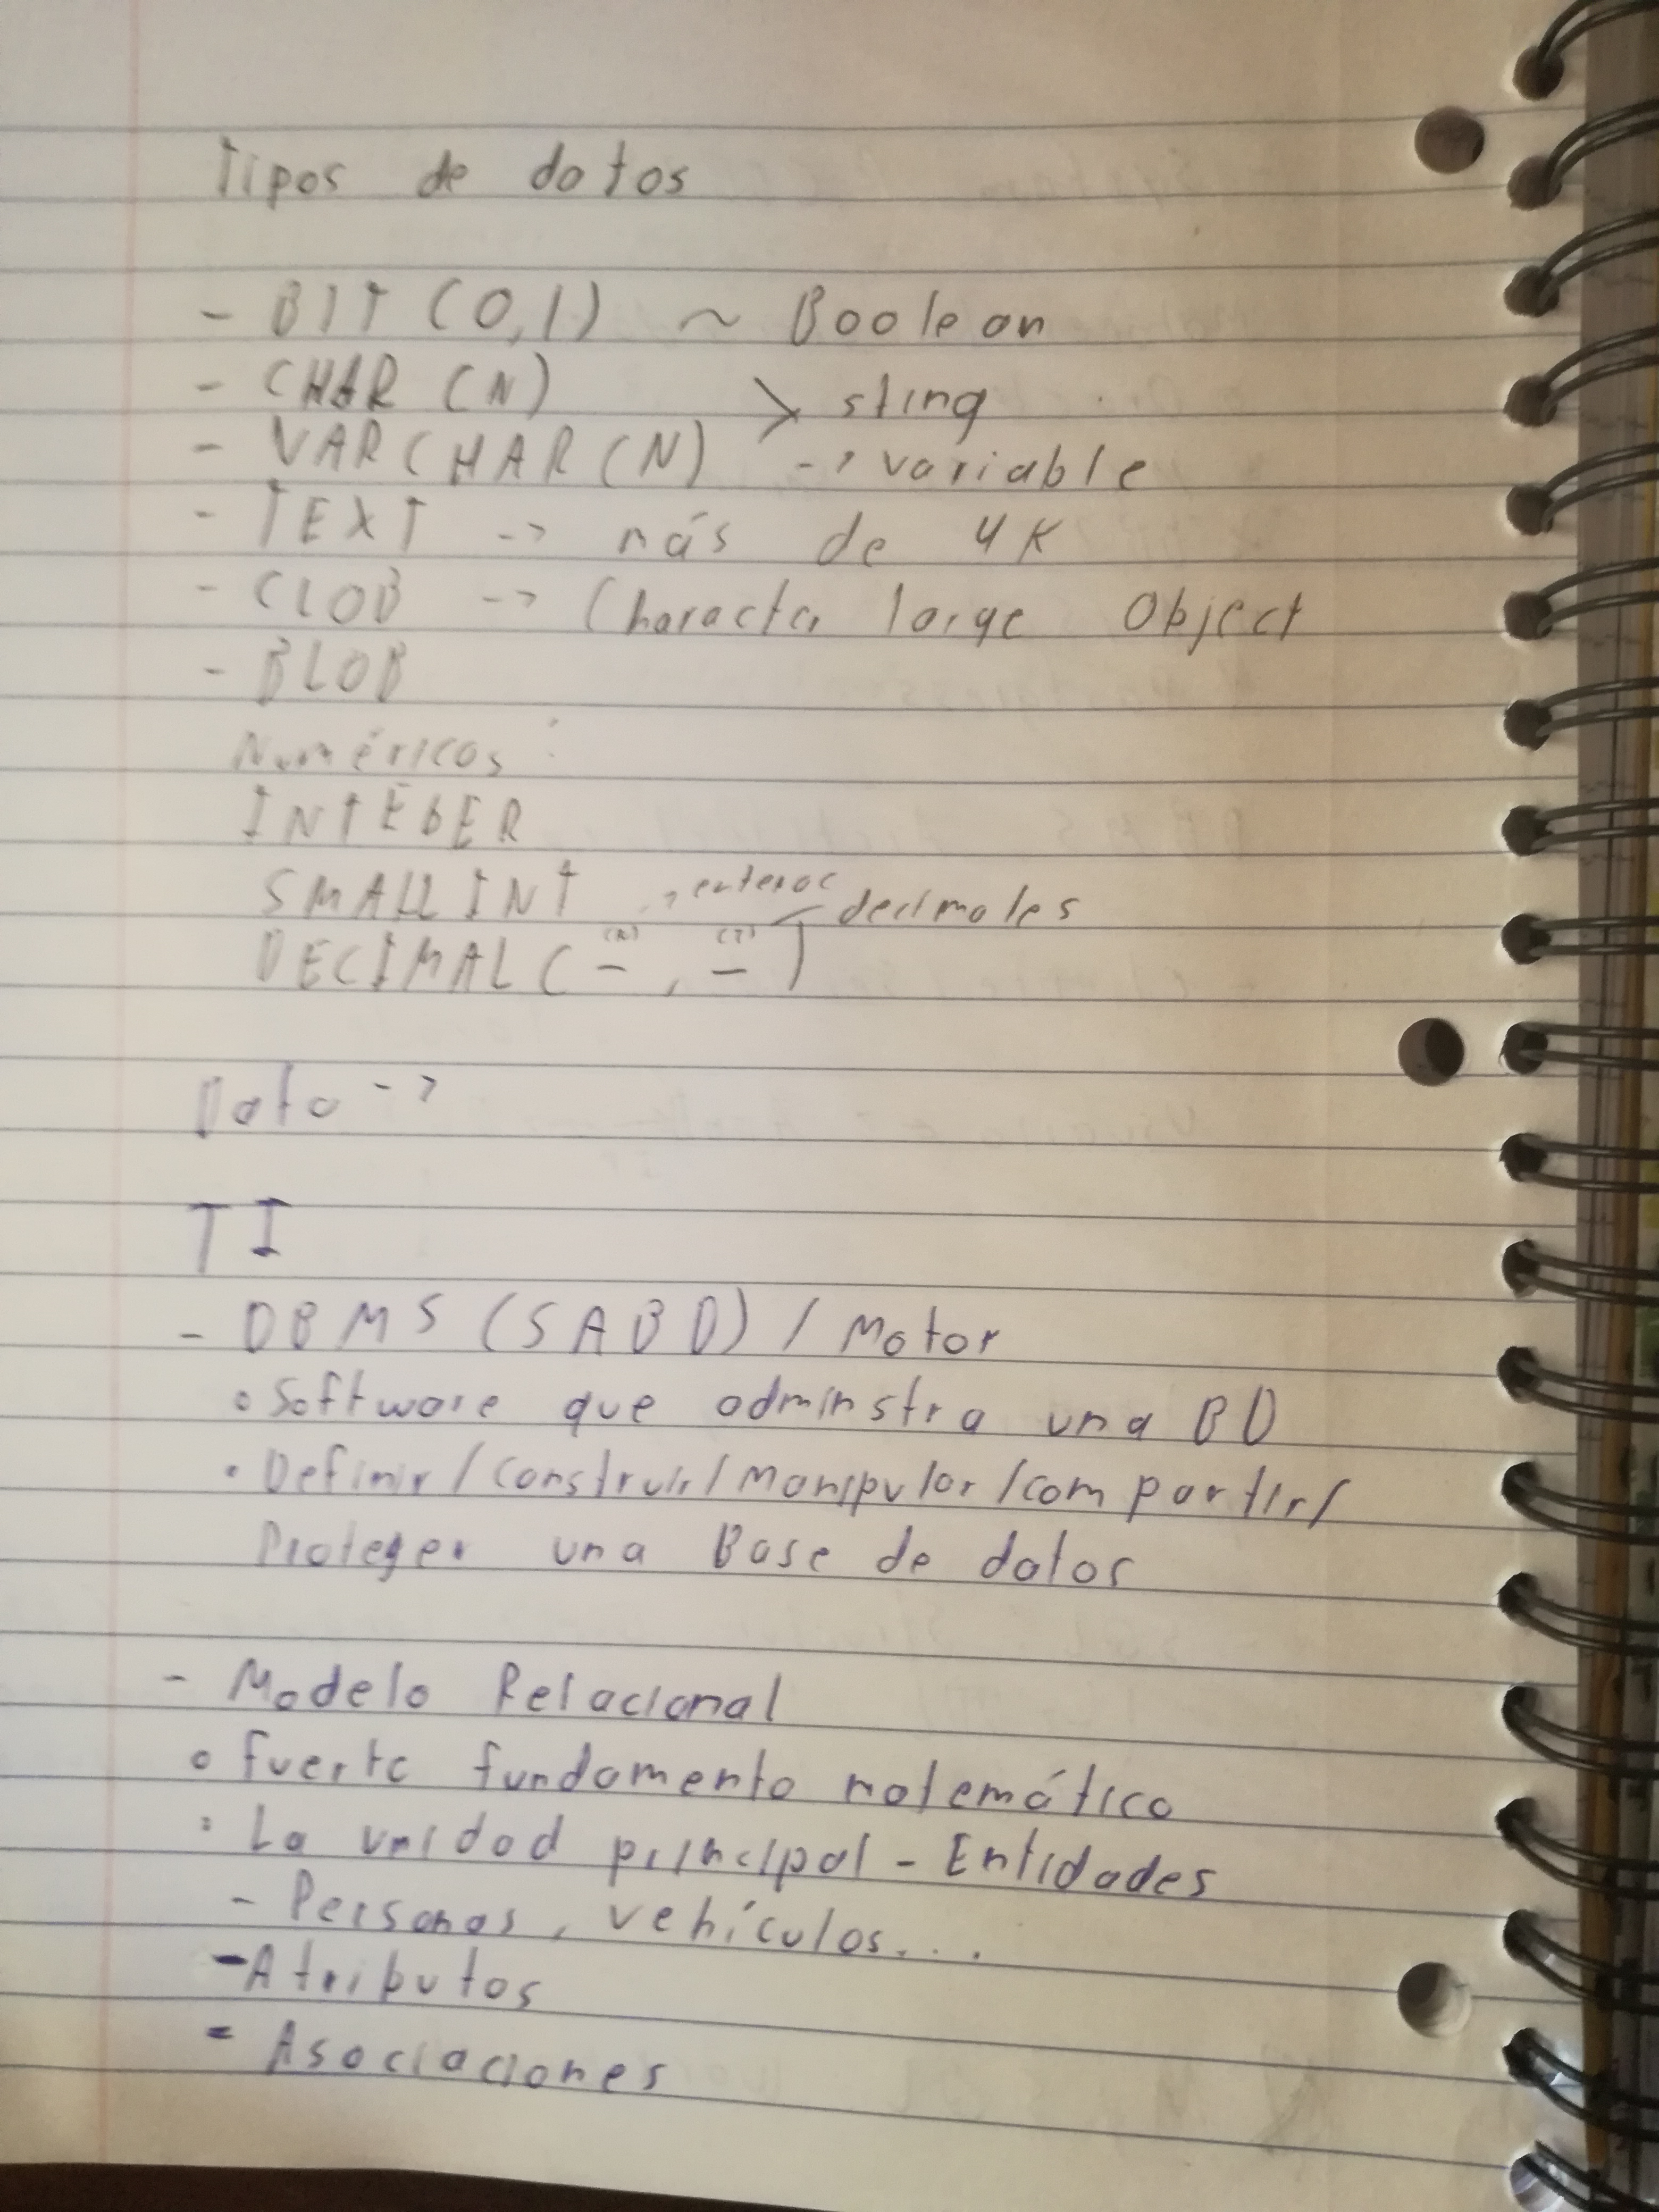 Tipos de datos
- BIT (0,1) ~ Boolean
- CHAR (N) > sting
- VARCHAR (N) -> variable
- TEXT -> más de 4K
- CLOB -> Character large Object
- BLOB
Numéricos :
INTEGER
SMALLINT
enteros decimales
DECIMAL ( _ , _ )
Dato ->
TI
- DBMS (SABD) / Motor
• Software que adminstra una BD
• Definir / construir / Manipular / compartir /
Proteger una Base de datos
- Modelo Relacional
• fuerte fundamento matemático
• La unidad principal - Entidades
- Personas, vehículos...
- Atributos
- Asociaciones